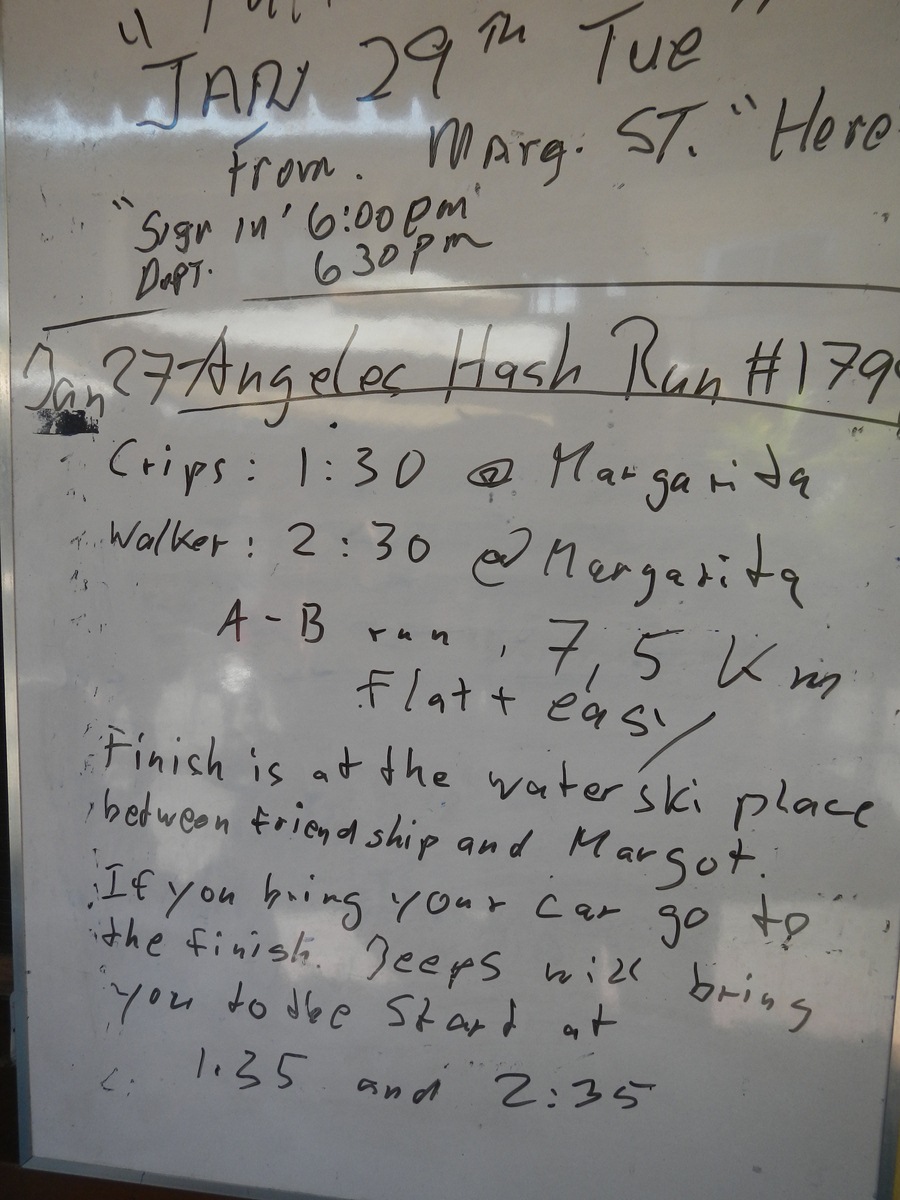 "JAN 29TH Tue"
From. Marg. ST. "Here
"Sign in' 6:00pm'
Dept. 630pm
Jan 27 Angeles Hash Run #179
Crips: 1:30 @ Margarita
Walker: 2:30 @ Margarita
A-B run, 7,5 Km
Flat + easy
Finish is at the water ski place
between friendship and Margot.
If you bring your car go to
the finish. Jeeps will bring
you to the Start at
1:35 and 2:35